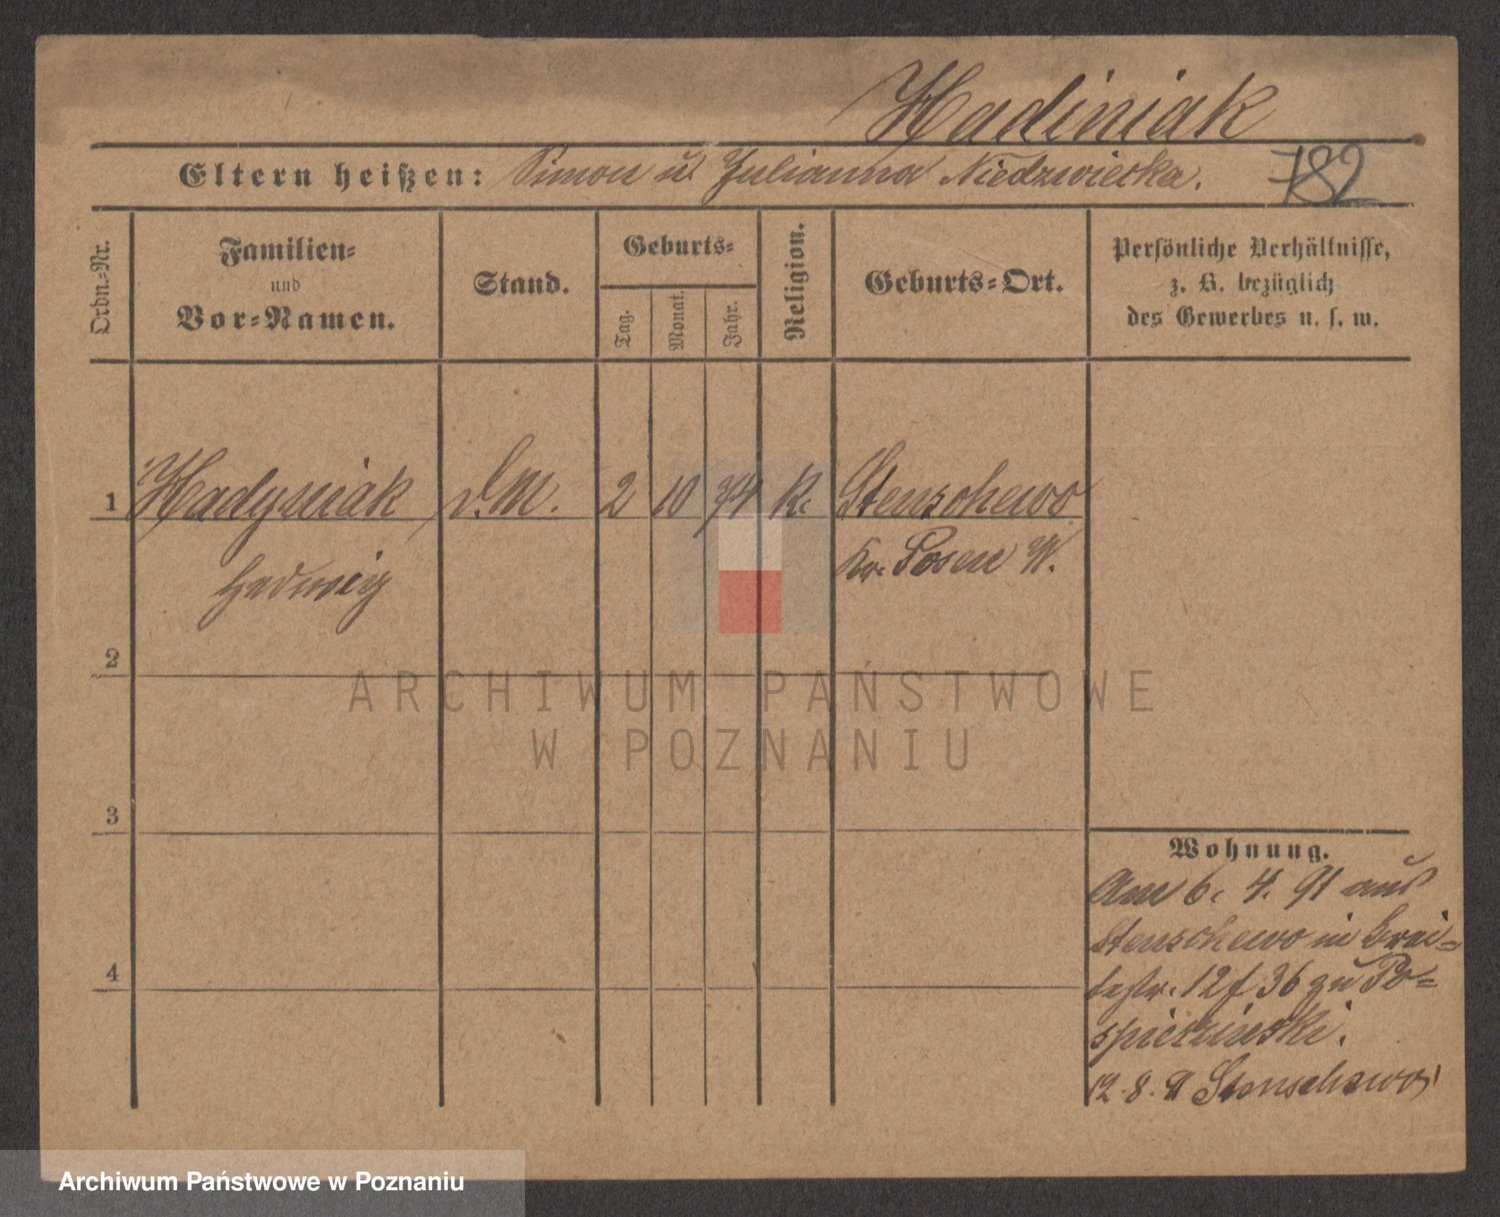 Hadiniak
Eltern heißen: Simon u. Julianna Niedzwiecka.
782
Ordn.-Nr.
Familien-
und
Vor-Namen.
Stand.
Geburts-
Tag.
Monat.
Jahr.
Religion.
Geburts-Ort.
Persönliche Verhältnisse,
z. B. bezüglich
des Gewerbes u. s. w.
1 Hadyniak d. M. 2 10 74 K. Stenschewo
Hedwig Kr. Posen W.
2
3
4
Wohnung.
Am 6. 4. 91 aus
Stenschewo in Brei-
testr. 12 f 36 zu Po-
spieszinski.
12. 8. 91 Stenschewo
ARCHIWUM PAŃSTWOWE
W POZNANIU
Archiwum Państwowe w Poznaniu